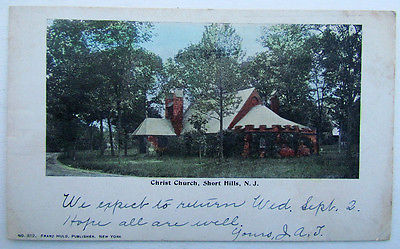 Christ Church, Short Hills, N. J.
We expect to return Wed. Sept. 2.
Hope all are well.
Yours, J. A. T.
NO. 212, FRANZ HULD, PUBLISHER, NEW YORK